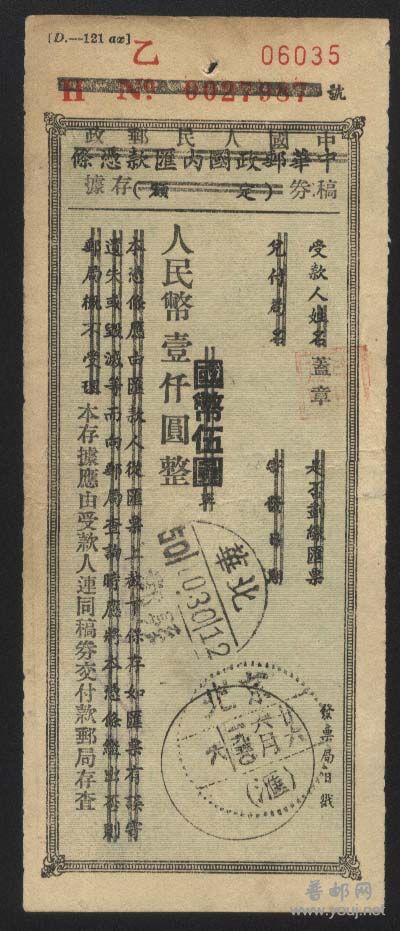 [D.—121 ax]
乙
06035
H No 0027987 號
中華人民郵政
中華郵政國內匯款憑條
稿券存據
(定額)
受款人姓名
蓋章
是否劃線匯票
兌付局名
發票局日戳
國幣伍圓
人民幣壹仟圓整
本憑條應由匯款人從匯票上裁下保存如匯票有誤寄
遺失或毀滅等而向郵局查詢時應將本憑條繳出否則
郵局概不受理
本存據應由受款人連同稿券交付款郵局存查
華北
北京
六月
(滙)
普邮网
www.youj.net